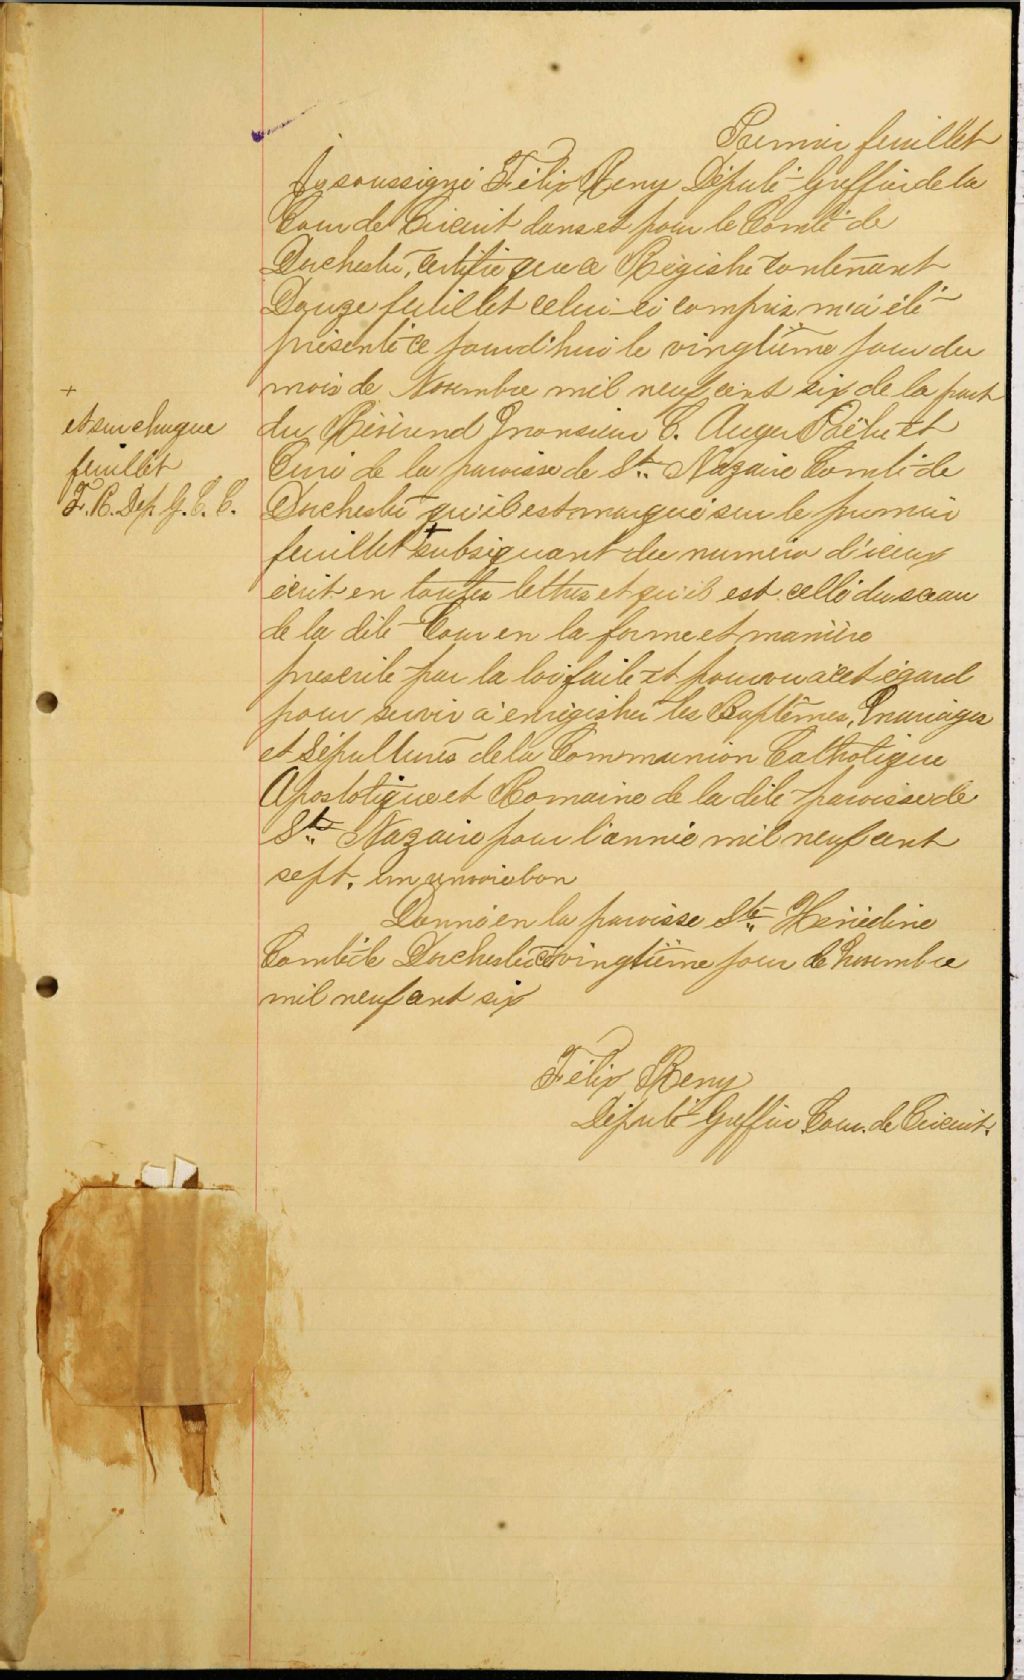 Premier feuillet
Je soussigné Félix Reny Député-Greffier de la
Cour de Circuit dans et pour le Comté de
Dorchester, certifie que ce Régistre contenant
Douze feuillet celui-ci compris m'a été
présenté ce jourd'hui le vingtième jour du
mois de Novembre mil neuf cent six de la part
du Révérend Monsieur C. Auger Prêtre et
Curé de la paroisse de St. Nazaire Comté de
Dorchester qu'il est marqué sur le premier
feuillet + subséquant du numéro d'iceux
écrit en toutes lettres et qu'il est cellé du sceau
de la dite Cour en la forme et manière
prescrite par la loi faite et pourvu à cet égard
pour servir à enrégistrer les Baptêmes, Mariages
et Sépultures de la Communion Catholique
Apostolique et Romaine de la dite paroisse de
St. Nazaire pour l'année mil neuf cent
sept.
Donné en la paroisse Ste Hénédine
Comté de Dorchester ce vingtième jour de Novembre
mil neuf cent six
Félix Reny
Député Greffier Cour de Circuit.
+
et sur chaque
feuillet
F. R. Dep. G. C. C.